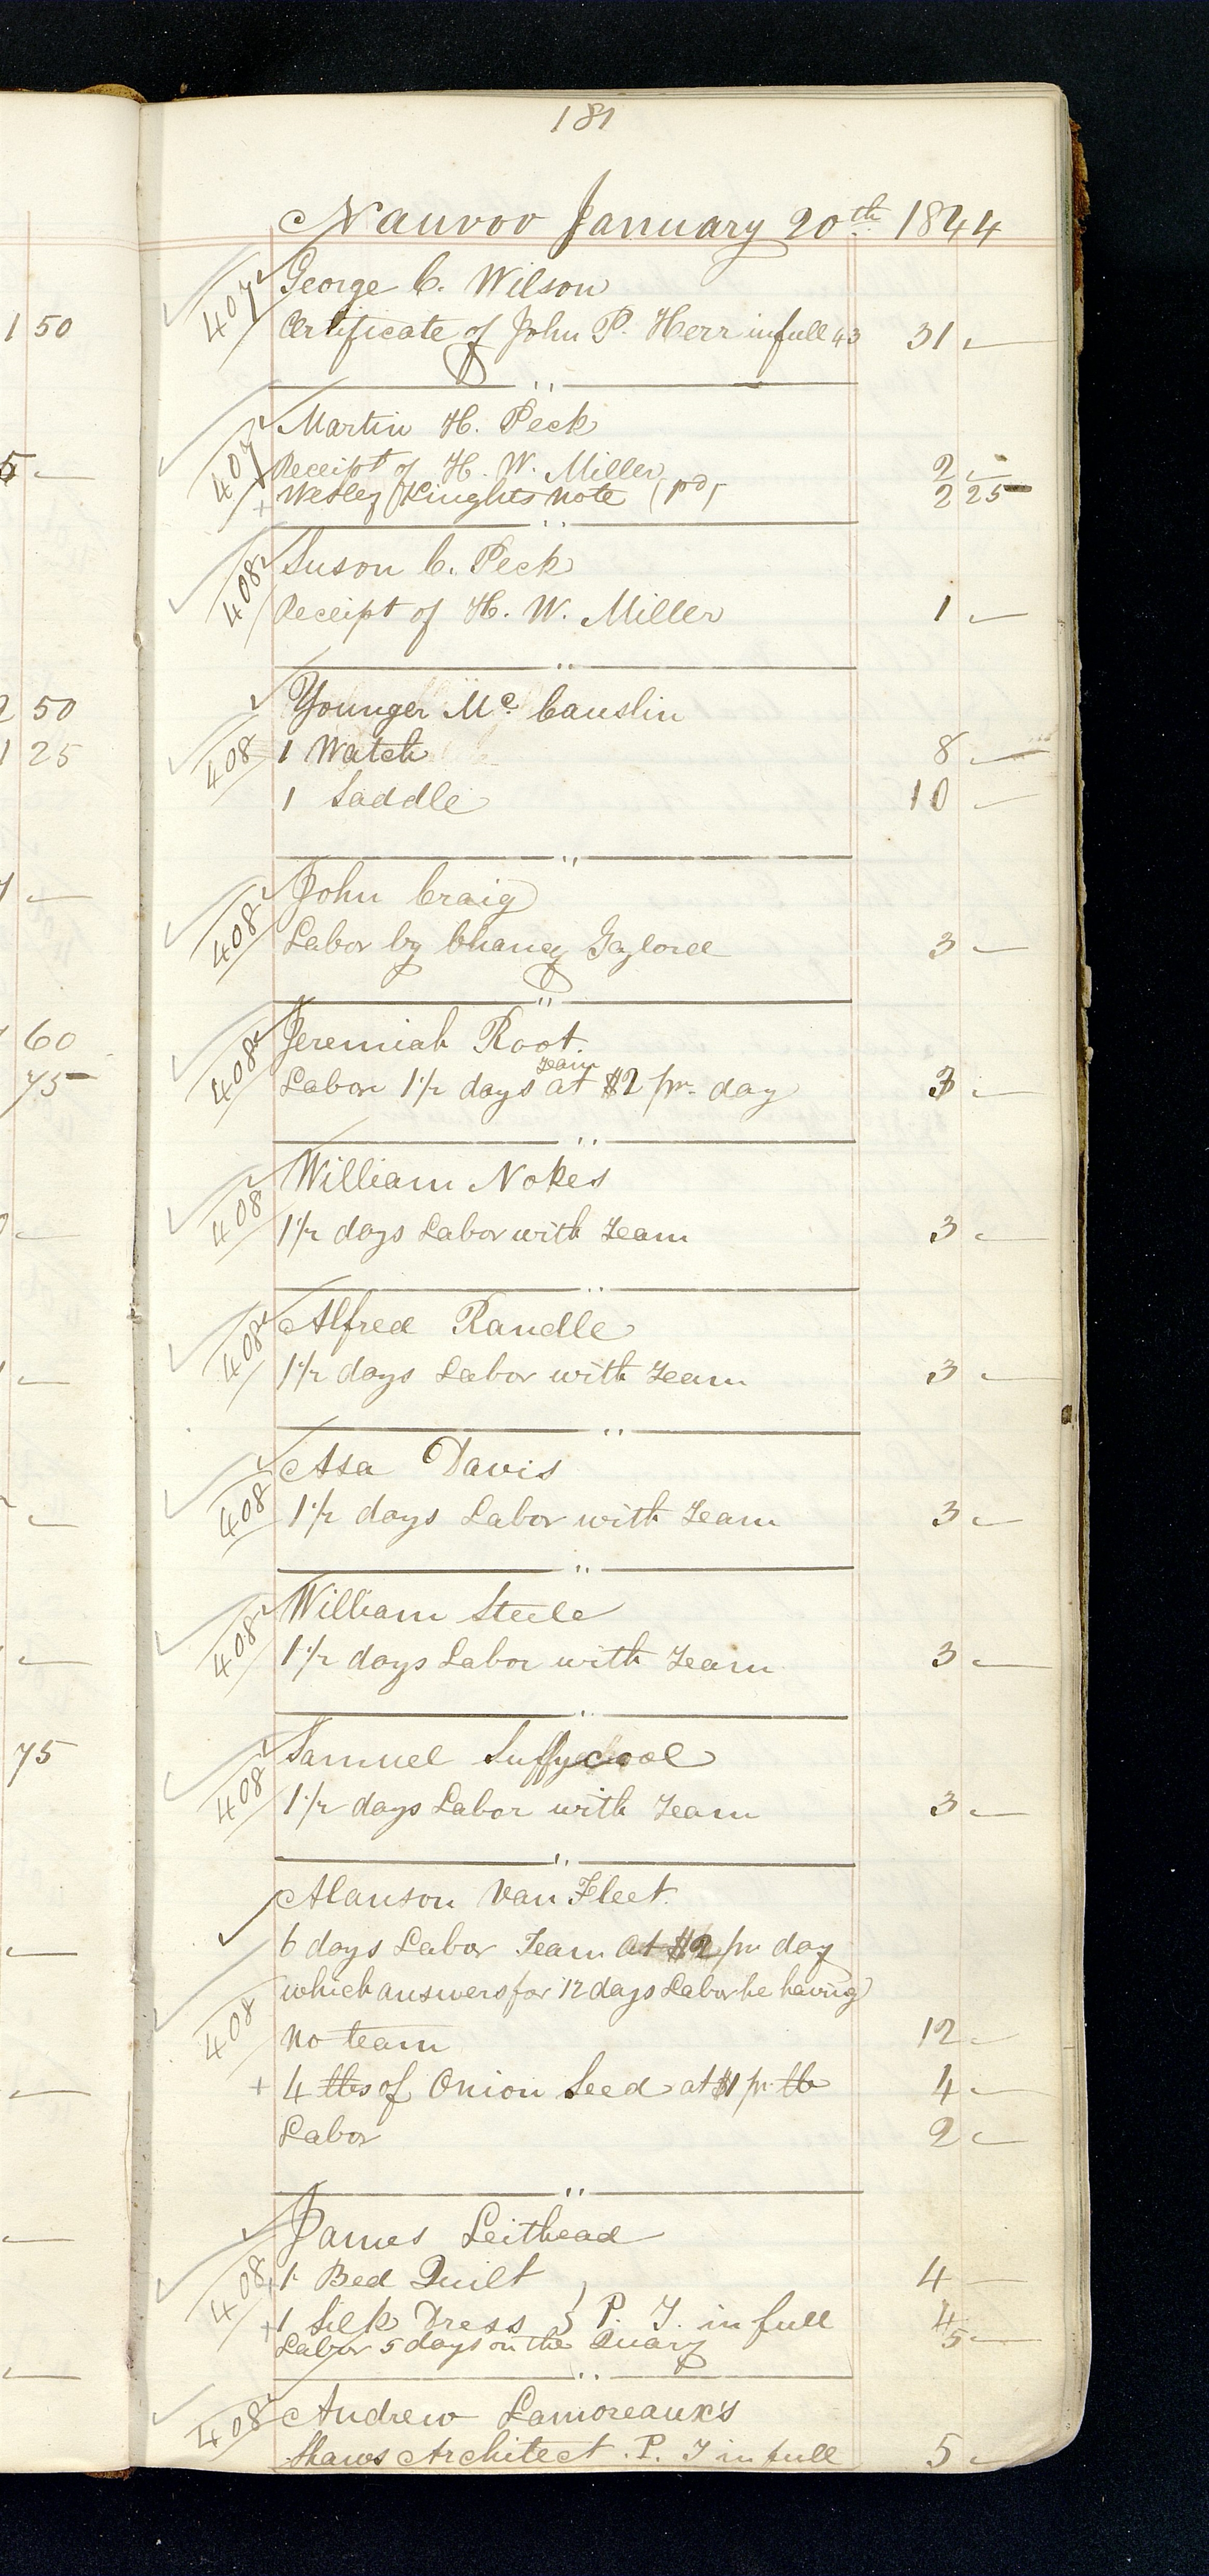 181
Nauvoo January 20th 1844
407 George C. Wilson
1 50
Certificate of John P. Herr in full 43 31 —
407 Martin H. Peck
5 — Receipt of H. W. Miller 2 —
+ Wesley Knights note (pd) 2 25
408 Suson C. Peck
Receipt of H. W. Miller 1 —
50 Younger Mc. Causlin
1 25 408 1 Watch 8 —
1 Saddle 10 —
408 John Craig
Labor by Chancy Gaylord 3 —
60 408 Jeremiah Root.
team
75 Labor 1 1/2 days at $2 pr. day 3 —
408 William Nokes
1 1/2 days Labor with Team 3 —
408 Alfred Randle
1 1/2 days Labor with Team 3 —
408 Asa Davis
1 1/2 days Labor with Team 3 —
408 William Steele
1 1/2 days Labor with Team 3 —
75 408 Samuel Suffycool
1 1/2 days Labor with Team 3 —
Alanson Van Fleet.
6 days Labor Team at $2 pr day
which answers for 12 days Labor he having
408 no team 12 —
+ 4 lbs of Onion Seed at $1 pr. lb 4 —
Labor 2 —
James Leithead
408 + 1 Bed Quilt 4 —
+ 1 Silk Dress } P. T. in full 4
Labor 5 days on the Quary 5 —
408 Andrew Lamoreaux's
Shaws Architect. P. T in full 5 —